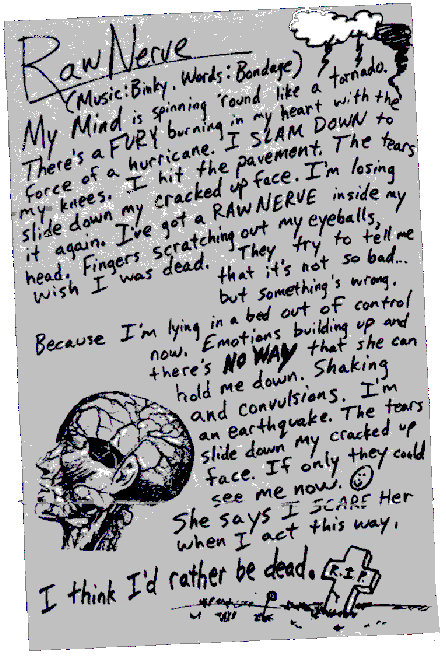 Raw Nerve
(Music: Binky. Words: Bondage)
My Mind is spinning 'round like a tornado.
There's a FURY burning in my heart with the
force of a hurricane. I SLAM DOWN to
my knees. I hit the pavement. The tears
slide down my cracked up face. I'm losing
it again. I've got a RAW NERVE inside my
head. Fingers scratching out my eyeballs,
wish I was dead. They try to tell me
that it's not so bad...
but something's wrong.
Because I'm lying in a bed out of control
now. Emotions building up and
there's NO WAY that she can
hold me down. Shaking
and convulsions. I'm
an earthquake. The tears
slide down my cracked up
face. If only they could
see me now.
She says I SCARE Her
when I act this way.
I think I'd rather be dead.
R.I.P.